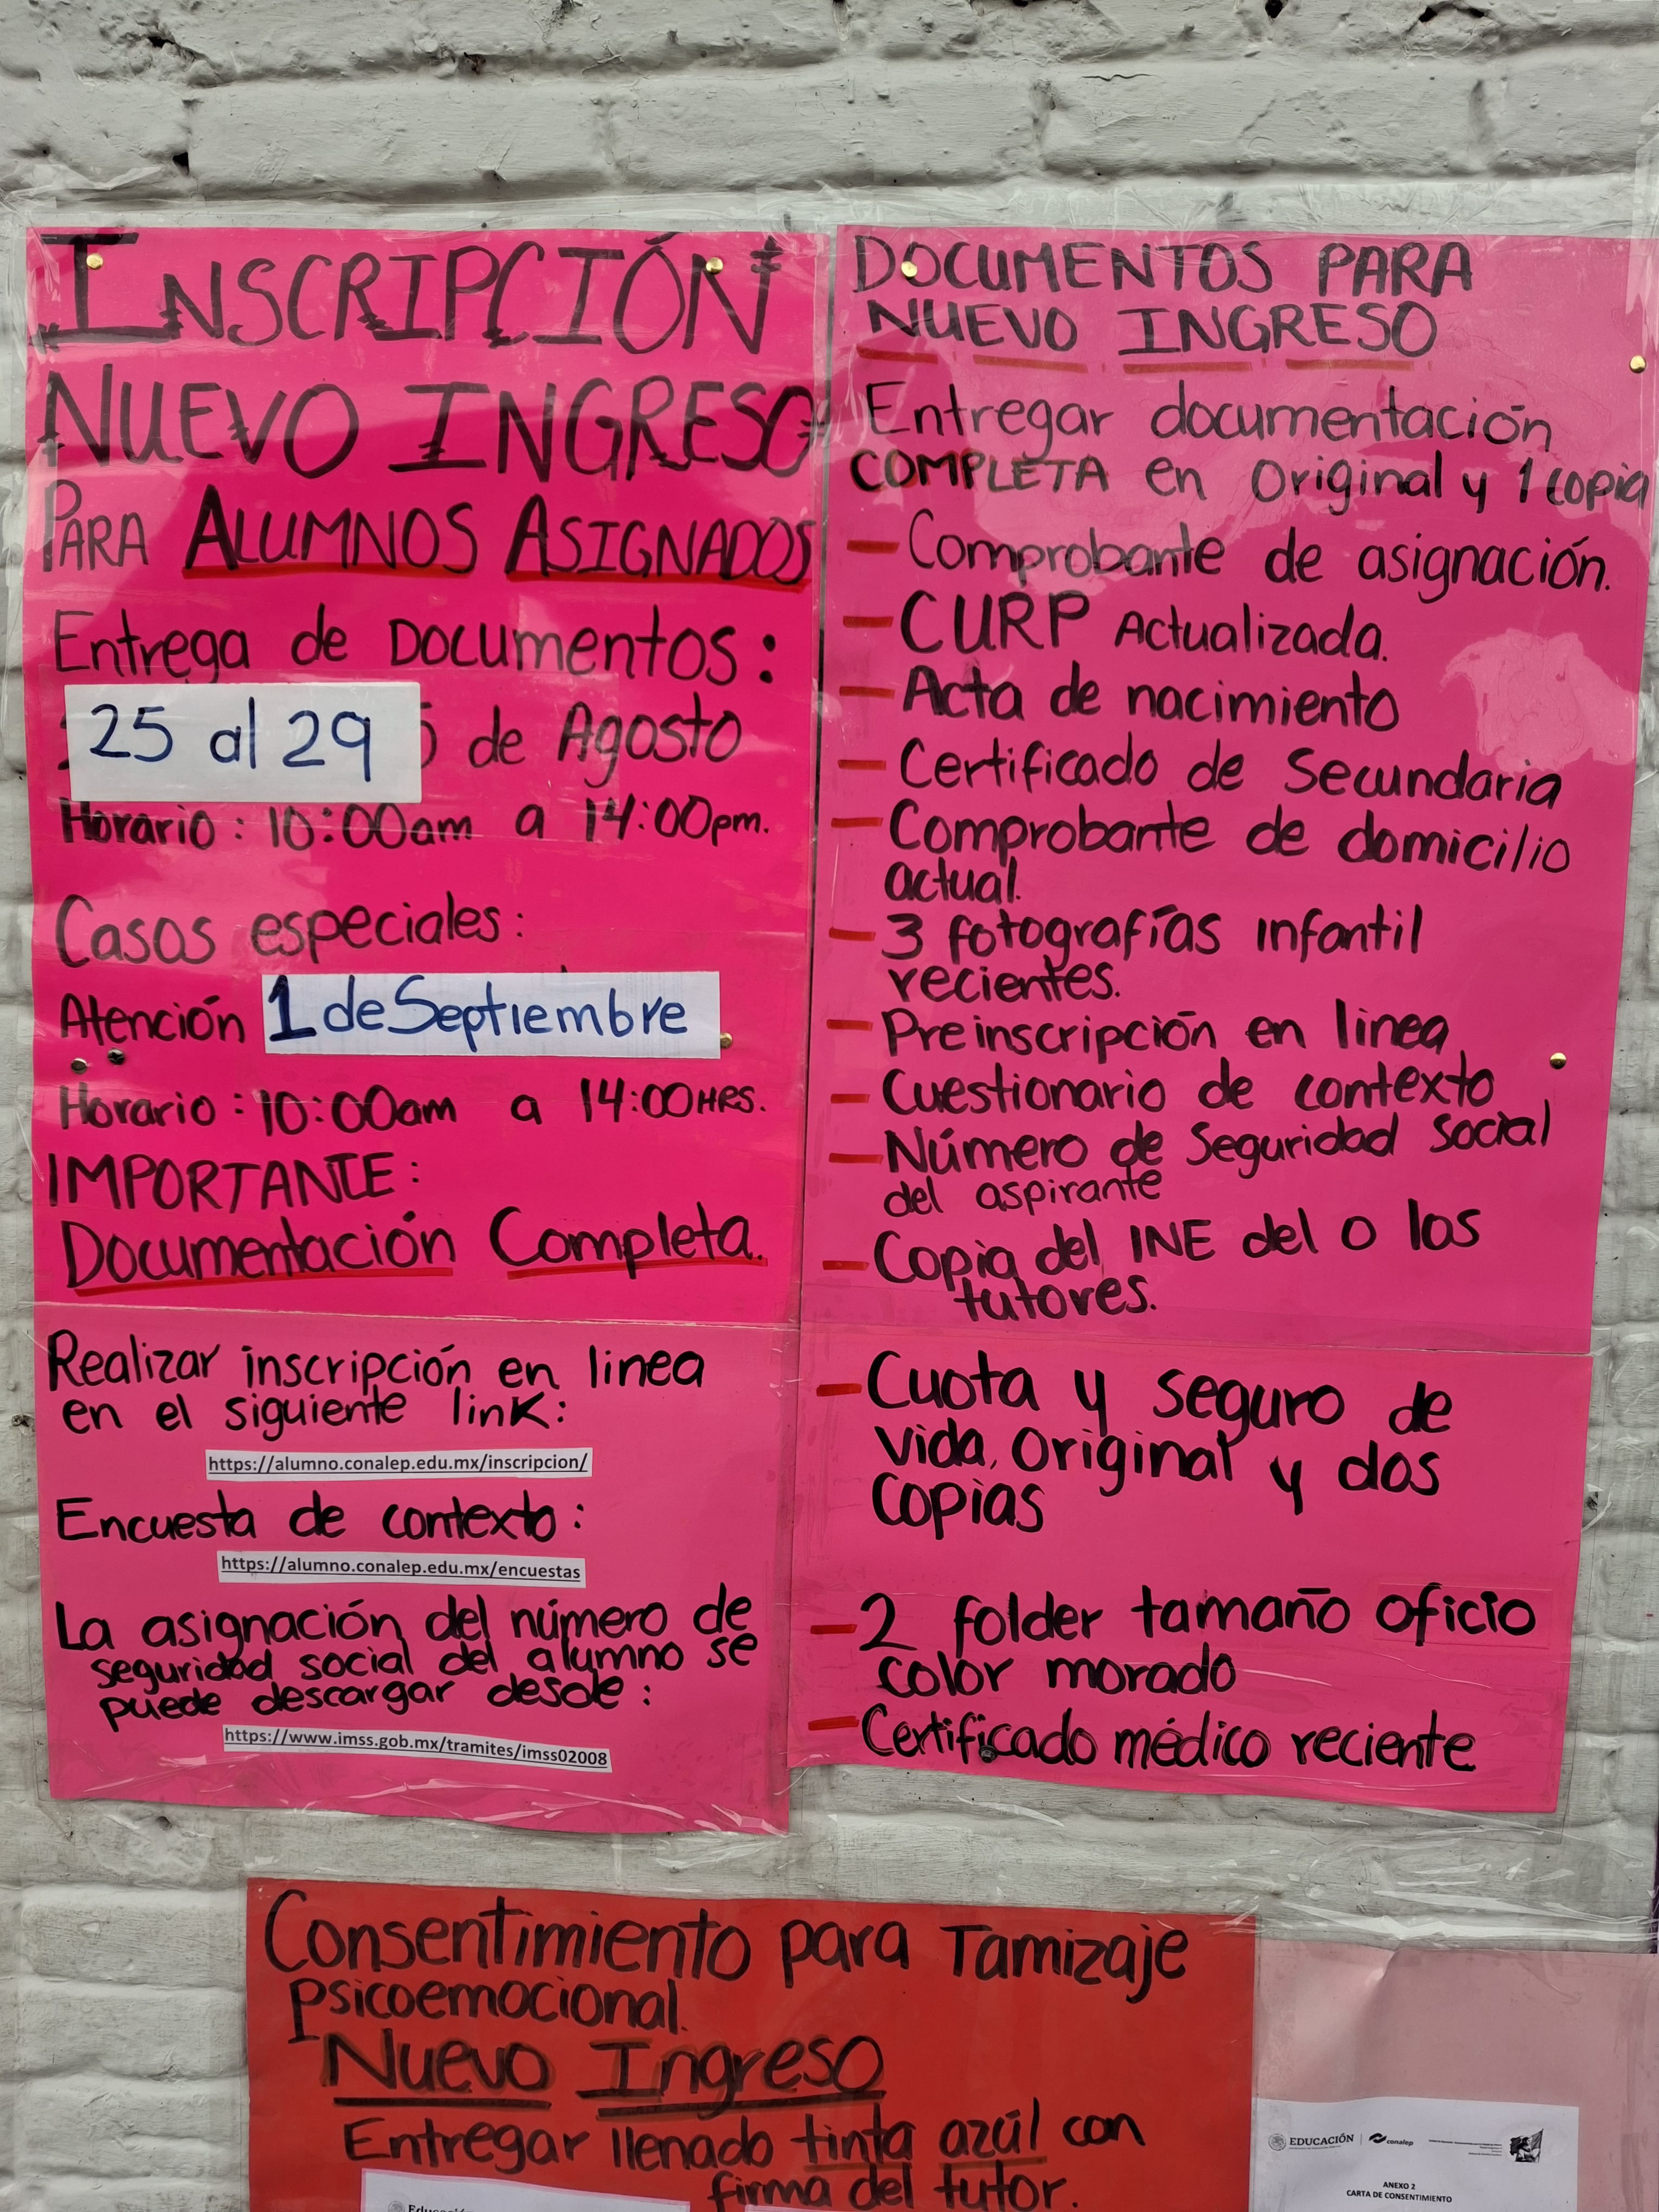 INSCRIPCIÓN
NUEVO INGRESO
PARA ALUMNOS ASIGNADOS
Entrega de Documentos:
25 al 29 de Agosto
Horario: 10:00am a 14:00pm.
Casos especiales:
Atención 1 de Septiembre
Horario: 10:00am a 14:00HRS.
IMPORTANTE:
Documentación Completa.
Realizar inscripción en linea
en el siguiente link:
https://alumno.conalep.edu.mx/inscripcion/
Encuesta de contexto:
https://alumno.conalep.edu.mx/encuestas
La asignación del número de
seguridad social del alumno se
puede descargar desde:
https://www.imss.gob.mx/tramites/imss02008
DOCUMENTOS PARA
NUEVO INGRESO
Entregar documentación
COMPLETA en Original y 1 copia
- Comprobante de asignación.
- CURP Actualizada.
- Acta de nacimiento
- Certificado de Secundaria
- Comprobante de domicilio
actual.
- 3 fotografías infantil
recientes.
- Preinscripción en linea
- Cuestionario de contexto
- Número de Seguridad Social
del aspirante
- Copia del INE del o los
tutores.
- Cuota y seguro de
vida, Original y dos
Copias
- 2 folder tamaño oficio
color morado
- Certificado médico reciente
Consentimiento para Tamizaje
Psicoemocional.
Nuevo Ingreso
Entregar llenado tinta azúl con
firma del tutor.
EDUCACIÓN conalep
ANEXO 2
CARTA DE CONSENTIMIENTO